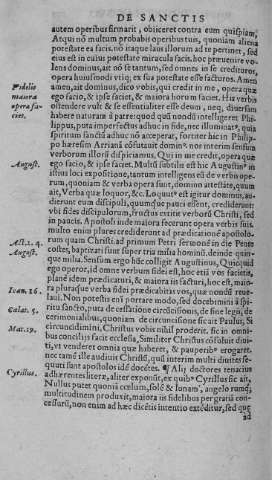 DE SANCTIS
autem operibus firmarit, obiiceret contra eum quispiam,
Atqui nō multum probabi operibus tuis, quoniam aliena
potestate ea facis. nō itaque laus illorum ad te pertinet, sed
eius est in cuius potestate miracula facis. hoc præuenire vo
lens dominus, ait nō se tantum, sed omnes in se credituros,
opera huiusmodi vtiq; ex sua potestate esse facturos. Amen
Fidelis
maiora
opera fa-
ciet.
amen, ait dominus, dico vobis, qui credit in me, opera quæ
ego facio, & ipse faciet, & maiora horum faciet. His verbis
ostendere vult & se essentialiter esse deum, neq; diuersam
habere naturam à patre: quod quū nondū intelligeret Phi-
lippus, puta imperfectus adhuc in fide, nec illuminatꝰ, quia
spiritum sanctū adhuc nō acceperat, fortiter hic in Philip-
po hæresim Arrianā cōfutauit dominꝰ: non intersim sensus
verborum illorū disiiciamus. Qui in me credit, opera quæ
August.
ego facio, & ipse faciet. Multū subtilis est hic Augustinꝰ in
istius loci expositione, tantum intelligens eū de verbis ope-
rum, quoniam & verba opera sunt, domino attestante, quum
ait, Verba quæ loquor, &c. Loquutꝰ est igitur dominus, au-
dierunt eum discipuli, quumque pauci essent, crediderunt
vbi fides discipulorum, fructus extitit verborū Christi, sed
in paucis. Apostoli inde maiora fecerunt opera verbi suis
multo enim plures crediderunt ad prædicationē apostolo-
Act. 2. 4.
rum quam Christi. ad primum Petri sermonē in die Pente
August.
costes, baptizati sunt super tria milia hominū. deinde quin-
que milia. Sensum ergo hūc colligit Augustinus, Quicquid
ego operor, id omne verbum fidei est, hoc etiā vos facietis,
plane idem prædicantes, & maiora in facturi, hoc est, maio-
Ioan. 16.
ra pluraque verba fidei prædicabitis vos, quæ nondū reue-
laui. Non potestis enī portare modo, sed docebimini à spi-
Galat. 5.
ritu sancto, puta de cessatione circūcisionis, de fine legis, de
cerimonialibus, quoniam de circuncisione sic ait Paulus, Si
Mat. 19.
circuncidimini, Christus vobis nihil proderit. sic in omni-
bus conciliis facit ecclesia. Similiter Christus cōsuluit diui-
ti, vt venderet omnia quæ haberet, & pauperibꝰ erogaret.
nec tamē ille audiuit Christū, quū interim multi diuites se-
quuti sunt apostolos idē docētes. ¶ Alij doctores tenacius
Cyrillus.
adhærentes literæ, aliter exponūt, ex quibꝰ Cyrillus sic ait,
Nullus putet quonia cœlum, solē & lunam, angelorumq;
multitudinem produxit, maiora iis fidelibus per gratiā con-
cessurū, non enim ad hæc dicētis intentio extēditur, sed que
ad